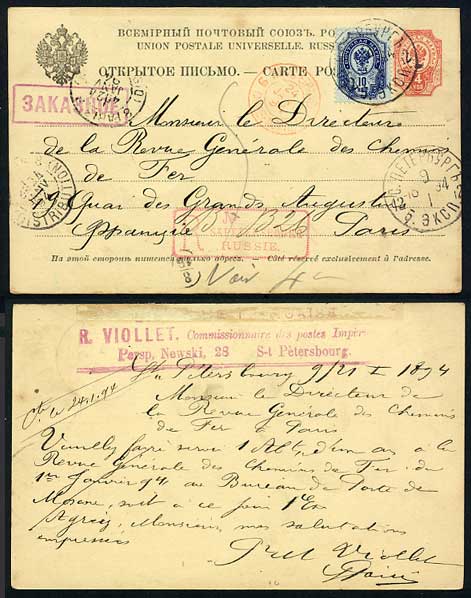 ВСЕМІРНЫЙ ПОЧТОВЫЙ СОЮЗЪ.
UNION POSTALE UNIVERSELLE. RUSS
ОТКРЫТОЕ ПИСЬМО. — CARTE POS
10
ЗАКАЗНОЕ
Monsieur le Directeur
de la Revue Générale des Chemins
de Fer
Quai des Grands Augustins
Paris
Франція
RUSSIE.
С.ПЕТЕРБУРГЪ
9
1
6. ЭКСП.
DISTRIBUTION
На этой сторонѣ пишется только адресъ. — Côté réservé exclusivement à l'adresse.
Voir
R. VIOLLET. Commissionnaire des postes Impér
Persp. Newski, 28 S-t Pétersbourg.
St Pétersbourg 9/21 I 1894
le 24.1.94
Monsieur le Directeur de
la Revue Générale des Chemins
de Fer à Paris
Veuillez faire servir 1 Abt, d'un an à la
Revue Générale des Chemins de Fer. de
1er Janvier 94 au Bureau de Poste de
à ce jour 1 Ex
Agréez, Monsieur, mes salutations
empressées
Viollet